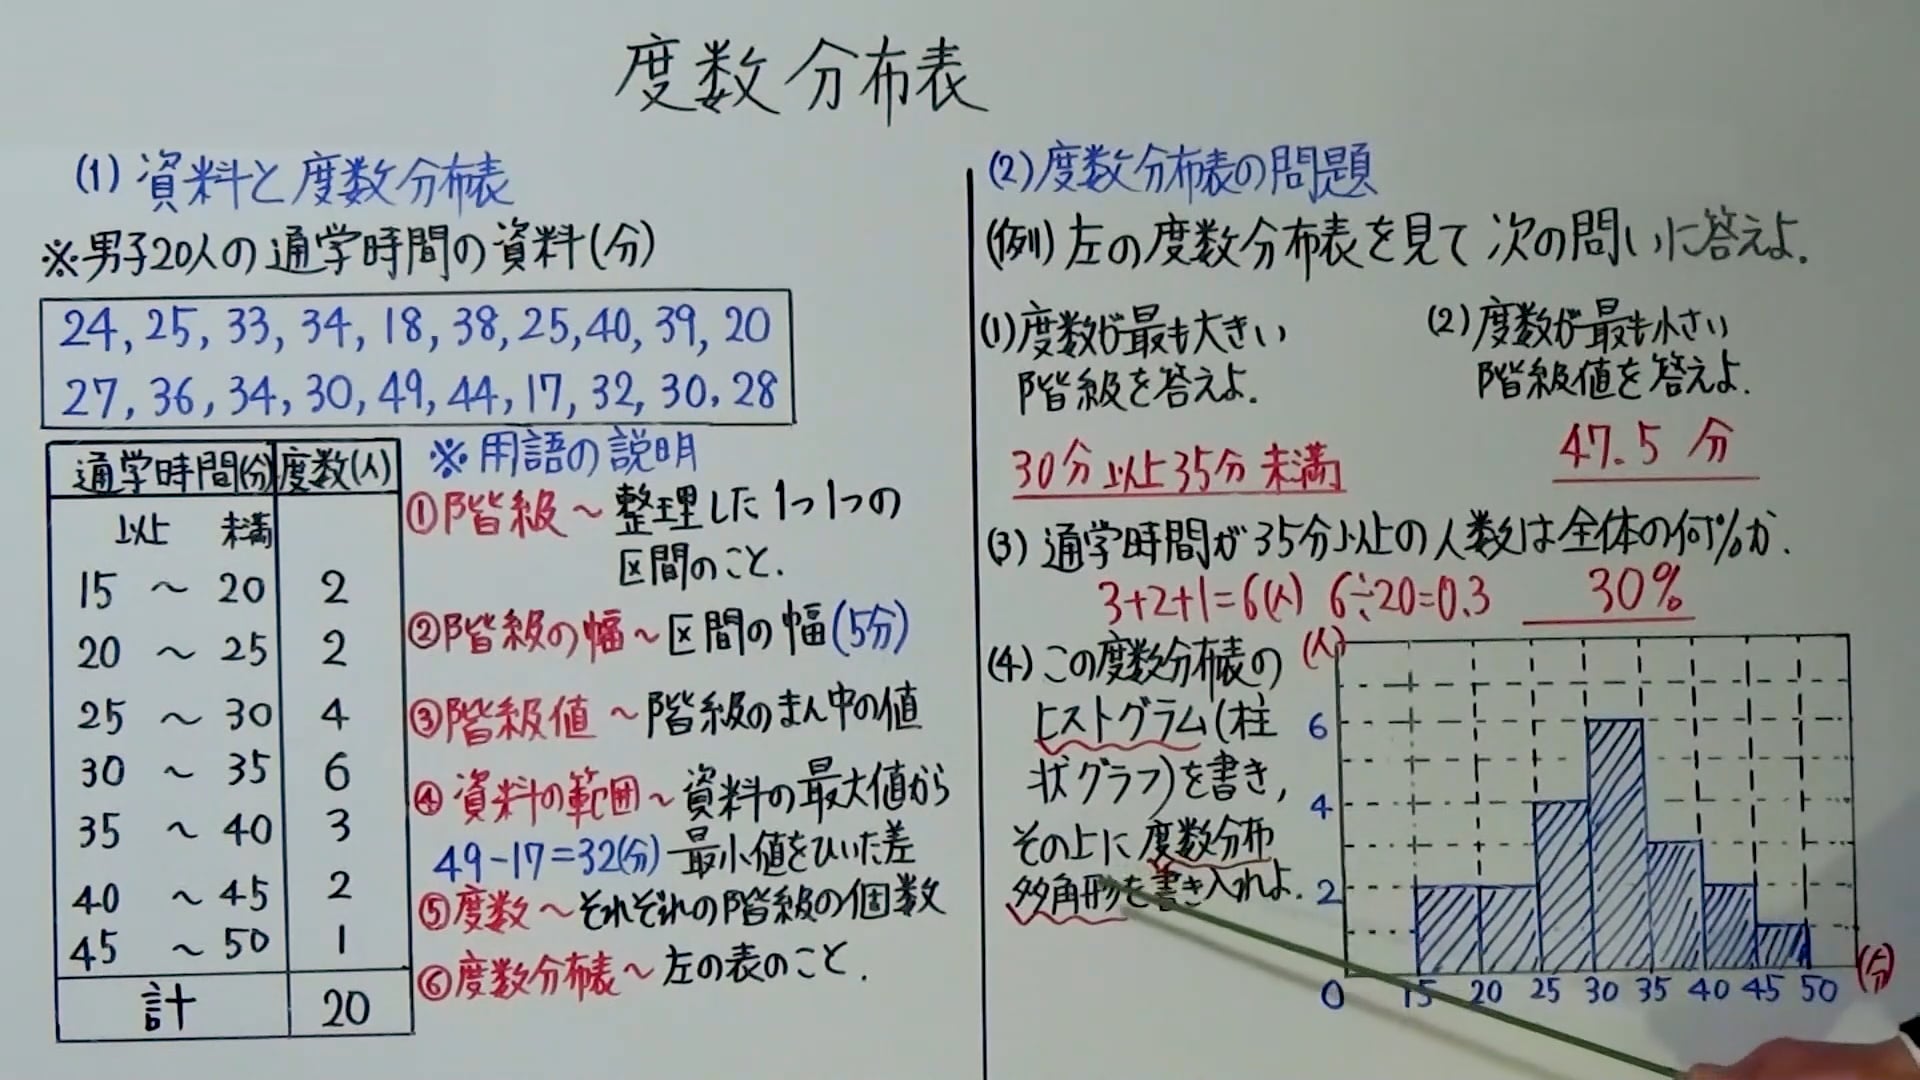 度数分布表
(1) 資料と度数分布表
※男子20人の通学時間の資料(分)
24, 25, 33, 34, 18, 38, 25, 40, 39, 20
27, 36, 34, 30, 49, 44, 17, 32, 30, 28
通学時間(分) 度数(人)
以上 未満
15 ~ 20 2
20 ~ 25 2
25 ~ 30 4
30 ~ 35 6
35 ~ 40 3
40 ~ 45 2
45 ~ 50 1
計 20
※用語の説明
①階級~整理した1つ1つの
区間のこと.
②階級の幅~区間の幅(5分)
③階級値~階級のまん中の値
④資料の範囲~資料の最大値から
49-17=32(分) 最小値をひいた差
⑤度数~それぞれの階級の個数
⑥度数分布表~左の表のこと.
(2)度数分布表の問題
(例)左の度数分布表を見て次の問いに答えよ.
(1)度数が最も大きい
階級を答えよ.
30分以上35分未満
(2)度数が最も小さい
階級値を答えよ.
47.5分
(3)通学時間が35分以上の人数は全体の何%か.
3+2+1=6(人) 6÷20=0.3 30%
(4)この度数分布表の
ヒストグラム(柱
状グラフ)を書き,
その上に度数分布
多角形を書き入れよ.
(人)
6
4
2
0 15 20 25 30 35 40 45 50 (分)